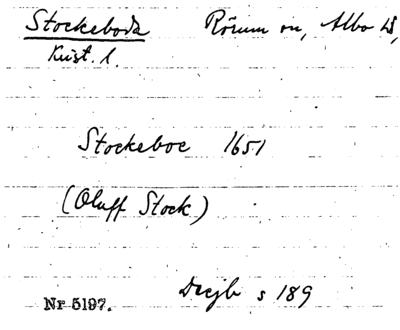 Stockeboda Rörum sn, Albo hd,
Krist. l.
Stockeboe 1651
(Oluff Stock)
Decjb s 189
Nr 5197.